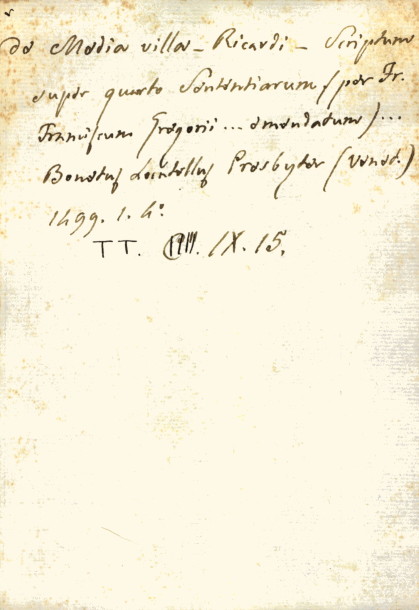 De Media villa - Ricardi - Scriptum
super quarto Sententiarum, (per Fr.
Franciscum Gregorii... emendatum)...
Bonetuſ Locatelluſ Presbyter (Venet.)
1499. 1. 4°.
TT. IX. 15.